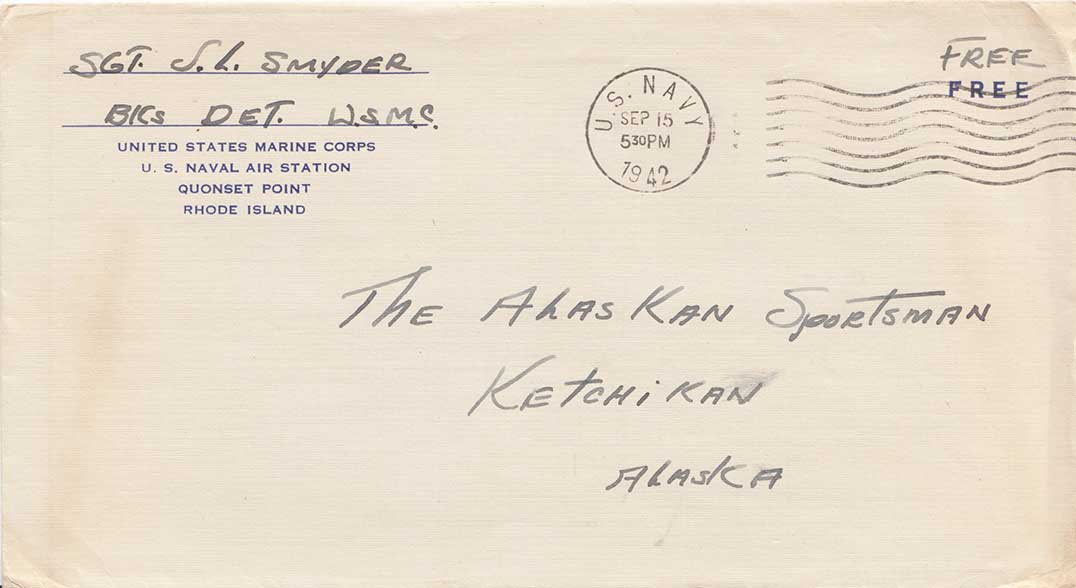 SGT. J. L. SMYDER
BKs DET. U.S.M.C.
UNITED STATES MARINE CORPS
U. S. NAVAL AIR STATION
QUONSET POINT
RHODE ISLAND
U. S. NAVY
SEP 15
530PM
1942
FREE
FREE
THE ALASKAN SPORTSMAN
KETCHiKAN
ALASKA